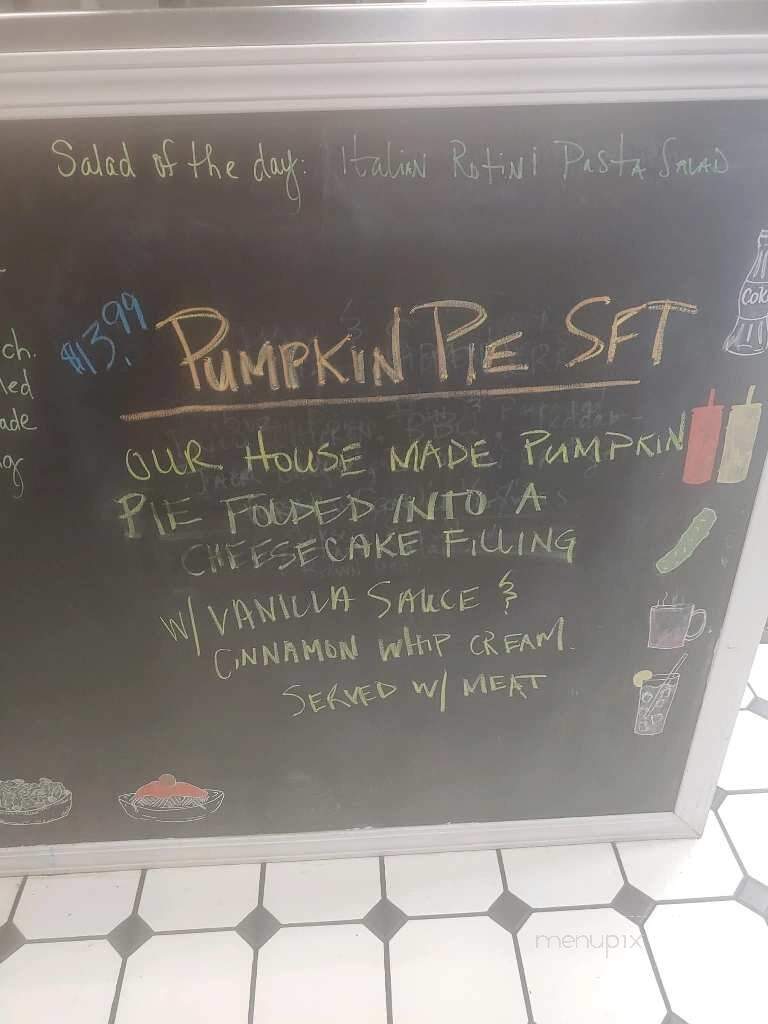 Salad of the day: Italian Rotini Pasta Salad
$13.99 PUMPKIN PIE SFT
OUR HOUSE MADE PUMPKIN
PIE FOLDED INTO A
CHEESECAKE FILLING
W/ VANILLA SAUCE &
CINNAMON WHIP CREAM.
SERVED W/ MEAT
ch.
led
ade
ng
Coke
menupix